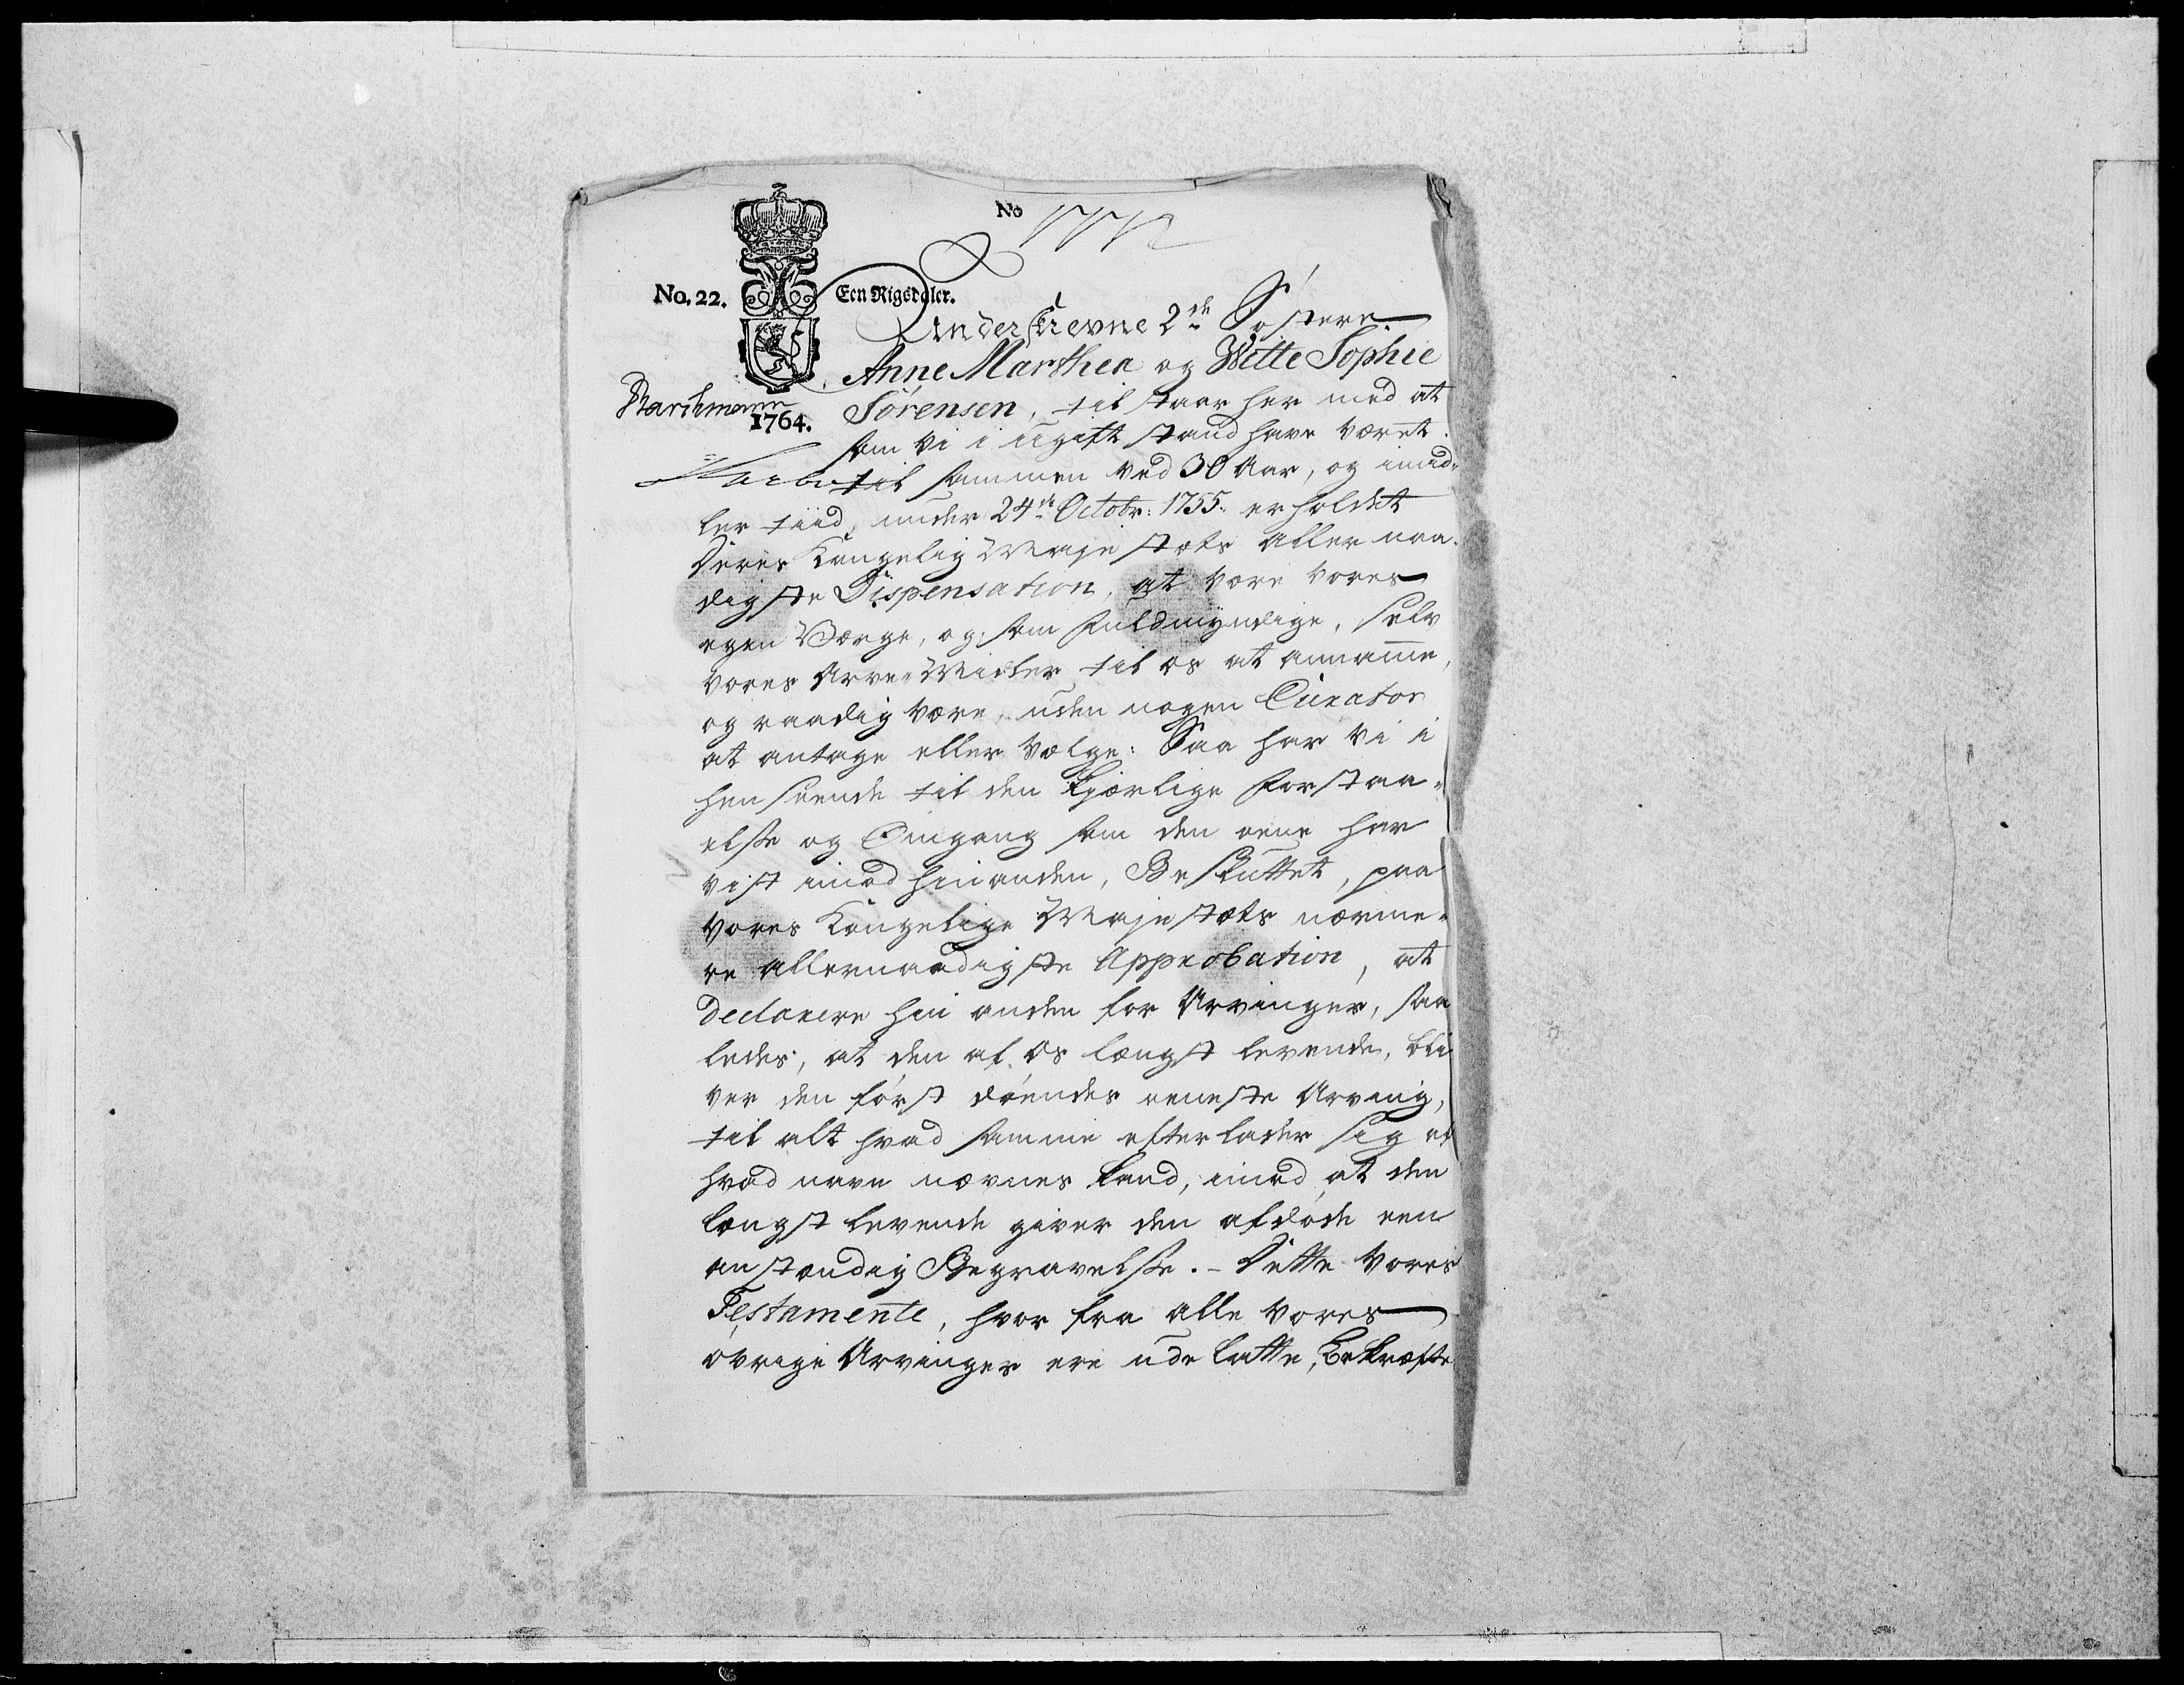 No
No. 22.
Een Rigsdaler.
Underskrevne 2de Søstere
Anne Marthea og Witte Sophie
1764. Sørensen, til staar her med at
som vi i ugift stand have været
til sammen ved 30 Aar, og imid-
ler tiid, under 24de Octobr: 1755. er holdet
Deres Kongelig Majestæts Aller naa-
digste Dispensation, at være vores
egen Værge, og som fuldmyndige, selv
vores Arve-Midler til os at annamme,
og raadig være, uden nogen Curator
at antage eller vælge: Saa har vi i
hen seende til den kjærlige forstaa-
else og Omgang som den eene har
vist imod hinanden, Besluttet, paa
Vores Kongelige Majestæts nærme-
re allernaadigste Approbation, at
Declarere hin anden for Arvinger, saa
ledes, at den af os længst levende, bli
ver den først døendes eeneste Arving,
til alt hvad samme efterlader sig af
hvad navn nævnes kand, imod at den
længst levende giver den afdøde een
anstændig Begravelse. - Dette Vores
Testamente, hvor fra alle vores
øvrige Arvinger ere ude latte, bekræfte